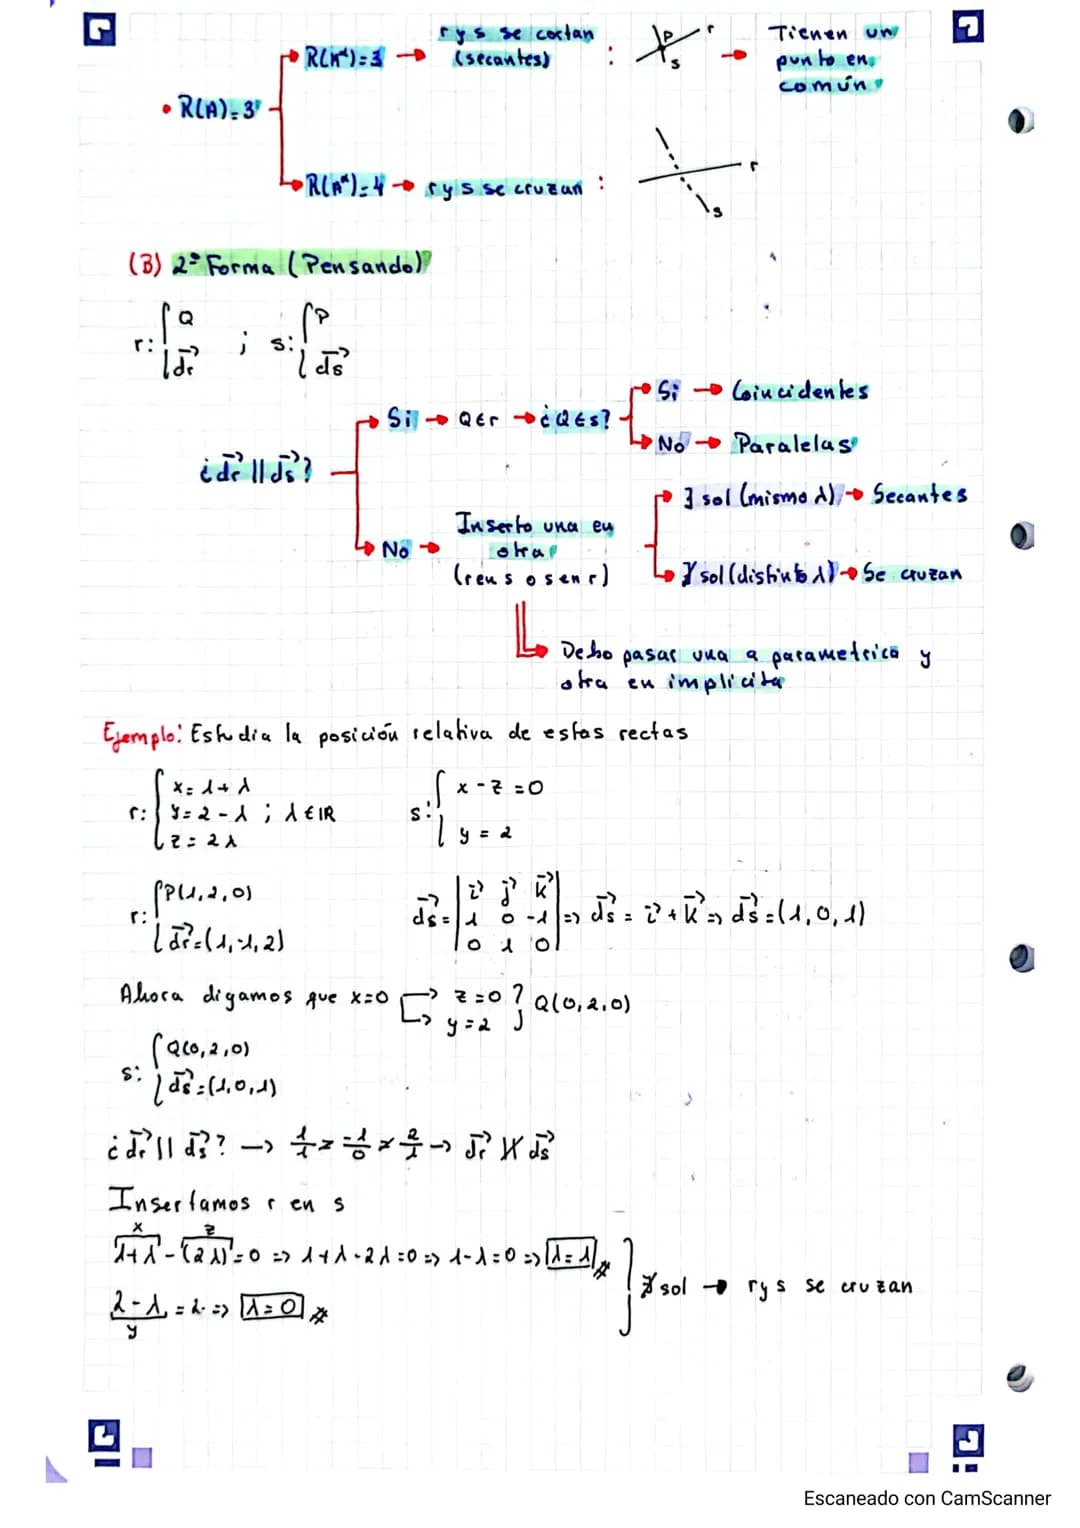 • R(A)=3
R(A*)=3 → r y s se cortan (secantes) : P r s → Tienen un punto en común
R(A*)=4 → r y s se cruzan : r s
(B) 2ª Forma (Pensando)
r: { Q ; s: { P
dr→ ds→
¿dr→ || ds→?
Si → Q∈r → ¿Q∈s?
Si → Coincidentes
No → Paralelas
No → Inserto una en otra (r en s o s en r)
∃ sol (mismo λ) → Secantes
∄ sol (distinto λ) → Se cruzan
Debo pasar una a parametrica y
otra en implicita
Ejemplo: Estudia la posición relativa de estas rectas
r: { x = 1 + λ
y = 2 - λ ; λ ∈ IR
z = 2λ
s: { x - z = 0
y = 2
r: { P(1,2,0)
dr→=(1,-1,2)
ds→ = | i→ j→ k→ |
| 1 0 -1 | => ds→ = i→ + k→ => ds→=(1,0,1)
| 0 1 0 |
Ahora digamos que x=0 → z=0
→ y=2 } Q(0,2,0)
s: { Q(0,2,0)
ds→=(1,0,1)
¿dr→ || ds→? → 1/1 ≠ -1/0 ≠ 2/1 → dr→ ∦ ds→
Insertamos r en s
x z
1+λ - (2λ) = 0 => 1+λ-2λ=0 => 1-λ=0 => λ=1 *
2-λ = 2 => λ=0 *
y
} ∄ sol → r y s se cruzan
Escaneado con CamScanner